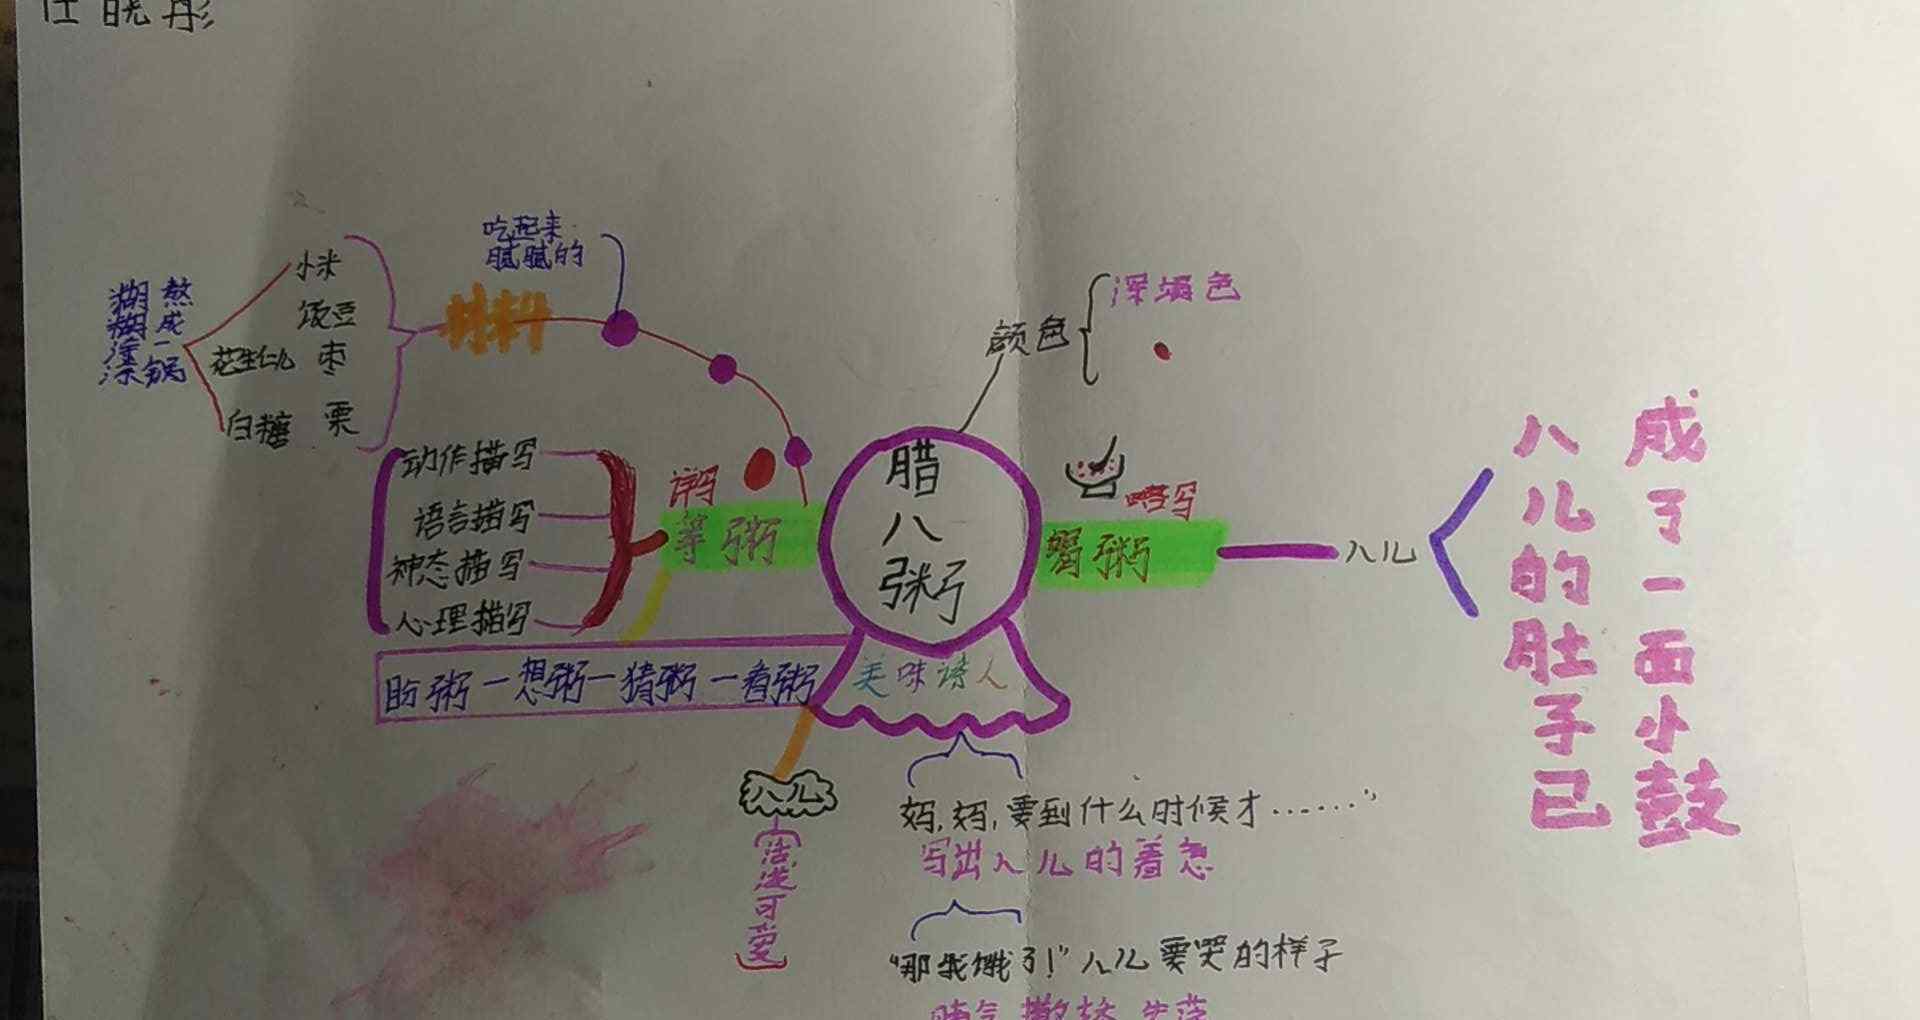 任晓彤
吃起来
腻腻的
熬成一锅
糊糊涂涂
小米
饭豆
花生仁儿 枣
白糖 栗
材料
颜色
深褐色
动作描写
语言描写
神态描写
心理描写
详写
等粥
腊八粥
略写
喝粥
八儿
八儿的肚子已
成了一面小鼓
盼粥一想粥一猜粥一看粥
美味诱人
八儿
活泼可爱
妈,妈,要到什么时候才……"
写出八儿的着急
"那我饿了!"八儿要哭的样子
撒娇